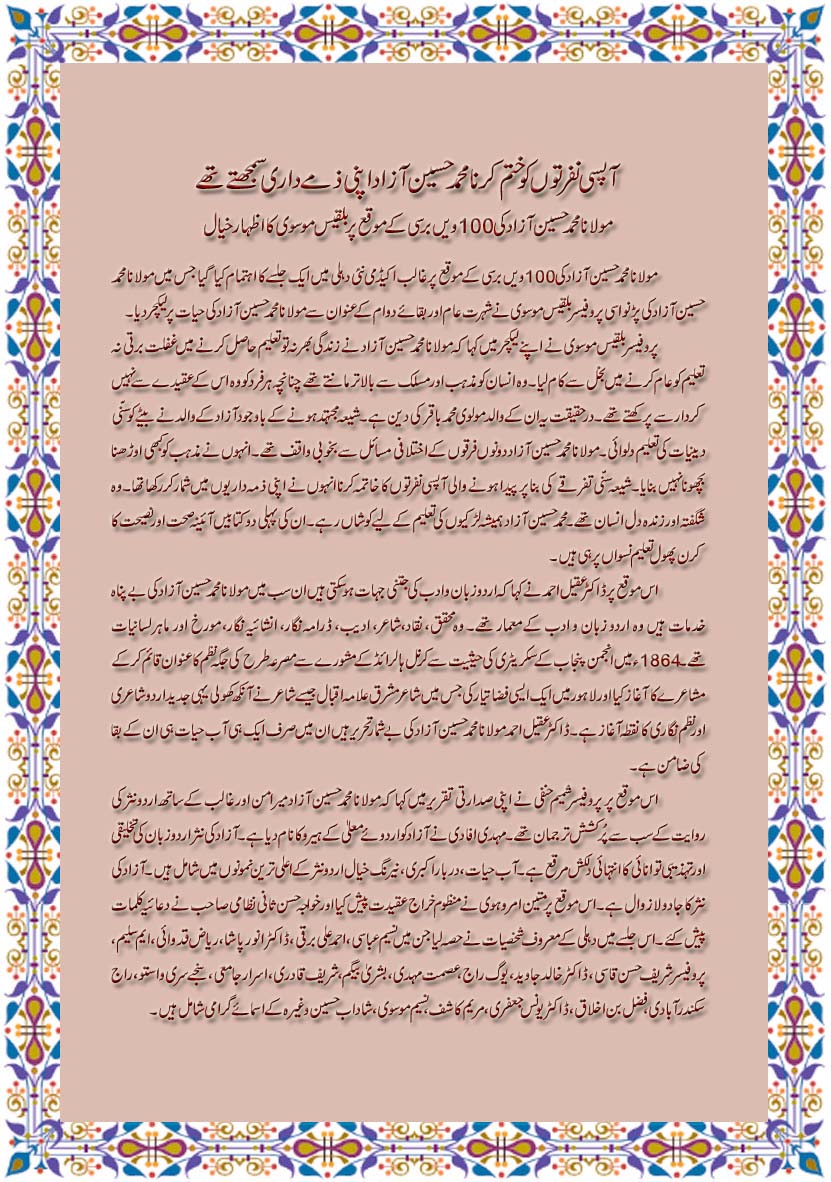 آپسی نفرتوں کو ختم کرنا محمد حسین آزاد اپنی ذمے داری سمجھتے تھے
مولانا محمد حسین آزاد کی 100 ویں برسی کے موقع پر بلقیس موسوی کا اظہار خیال
مولانا محمد حسین آزاد کی 100 ویں برسی کے موقع پر غالب اکیڈمی نئی دہلی میں ایک جلسے کا اہتمام کیا گیا جس میں مولانا محمد
حسین آزاد کی پڑنواسی پروفیسر بلقیس موسوی نے شہرت عام اور بقائے دوام کے عنوان سے مولانا محمد حسین آزاد کی حیات پر لیکچر دیا۔
پروفیسر بلقیس موسوی نے اپنے لیکچر میں کہا کہ مولانا محمد حسین آزاد نے زندگی بھر نہ تو تعلیم حاصل کرنے میں غفلت برتی نہ
تعلیم کو عام کرنے میں بخل سے کام لیا۔ وہ انسان کو مذہب اور مسلک سے بالاتر مانتے تھے چنانچہ ہر فرد کو وہ اس کے عقیدے سے نہیں
کردار سے پرکھتے تھے۔ در حقیقت یہ ان کے والد مولوی محمد باقر کی دین ہے۔ شیعہ مجتہد ہونے کے باوجود آزاد کے والد نے بیٹے کو سنّی
دینیات کی تعلیم دلوائی۔ مولانا محمد حسین آزاد دونوں فرقوں کے اختلافی مسائل سے بخوبی واقف تھے۔ انہوں نے مذہب کو کبھی اوڑھنا
بچھونا نہیں بنایا۔ شیعہ سنّی تفرقے کی بنا پر پیدا ہونے والی آپسی نفرتوں کا خاتمہ کرنا انہوں نے اپنی ذمہ داریوں میں شمار کر رکھا تھا۔ وہ
شگفتہ اور زندہ دل انسان تھے۔ محمد حسین آزاد ہمیشہ لڑکیوں کی تعلیم کے لیے کوشاں رہے۔ ان کی پہلی دو کتابیں آئینہ صحت اور نصیحت کا
کرن پھول تعلیم نسواں پر ہی ہیں۔
اس موقع پر ڈاکٹر عقیل احمد نے کہا کہ اردو زبان و ادب کی جتنی جہات ہو سکتی ہیں ان سب میں مولانا محمد حسین آزاد کی بے پناہ
خدمات ہیں وہ اردو زبان و ادب کے معمار تھے۔ وہ محقق، نقاد، شاعر، ادیب، ڈرامہ نگار، انشائیہ نگار، مورخ اور ماہر لسانیات
تھے۔ 1864ء میں انجمن پنجاب کے سکریٹری کی حیثیت سے کرنل ہالرائڈ کے مشورے سے مصرعہ طرح کی جگہ نظم کا عنوان قائم کر کے
مشاعرے کا آغاز کیا اور لاہور میں ایک ایسی فضا تیار کی جس میں شاعر مشرق علامہ اقبال جیسے شاعر نے آنکھ کھولی یہی جدید اردو شاعری
اور نظم نگاری کا نقطہ آغاز ہے۔ ڈاکٹر عقیل احمد مولانا محمد حسین آزاد کی بے شمار تحریریں ہیں ان میں صرف ایک ہی آب حیات ہی ان کے بقا
کی ضامن ہے۔
اس موقع پر پروفیسر شمیم حنفی نے اپنی صدارتی تقریر میں کہا کہ مولانا محمد حسین آزاد میر امن اور غالب کے ساتھ اردو نثر کی
روایت کے سب سے پُرکشش ترجمان تھے۔ مہدی افادی نے آزاد کو اردوئے معلیٰ کے ہیرو کا نام دیا ہے۔ آزاد کی نثر اردو زبان کی تخلیقی
اور تہذیبی توانائی کا انتہائی دلکش مرقع ہے۔ آب حیات، دربار اکبری، نیرنگ خیال اردو نثر کے اعلی ترین نمونوں میں شامل ہیں۔ آزاد کی
نثر کا جادو لازوال ہے۔ اس موقع پر متین امروہوی نے منظوم خراج عقیدت پیش کیا اور خواجہ حسن ثانی نظامی صاحب نے دعائیہ کلمات
پیش کئے۔ اس جلسے میں دہلی کے معروف شخصیات نے حصہ لیا جن میں نسیم عباسی، احمد علی برقی، ڈاکٹر انور پاشا، ریاض قدوائی، ایم سلیم،
پروفیسر شریف حسن قاسمی، ڈاکٹر خالد جاوید، یوگ راج، عصمت مہدی، بشریٰ بیگم، شریف قادری، اسرار جامعی، سنجے سری واستو، راج
سکندرآبادی، فضل بن اخلاق، ڈاکٹر یونس جعفری، مریم کاشف، نسیم موسوی، شاداب حسین وغیرہ کے اسمائے گرامی شامل ہیں۔